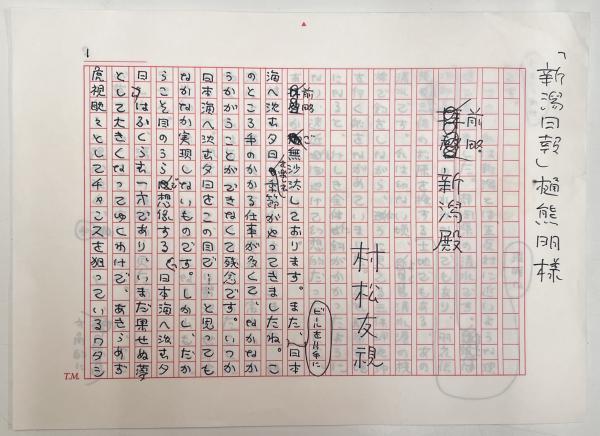 「新潟日報」樋熊明様
前略 新潟殿
村松友視
前略 ご無沙汰しております。また、日本
ビールを片手に
海へ沈む夕日を楽しむ季節がやってきましたね。こ
のところ手のかかる仕事が多くて、なかなか
うかがうことができなくて残念です。いつか
日本海へ沈む夕日をこの目で……と思っても
なかなか実現しないものです。しかし、だか
らこそ目のうらで想像する日本海へ沈む夕
日はふくらむ一方であり、いまだ果せぬ夢
として大きくなってゆくわけで、あきらめず
虎視眈々としてチャンスを狙っているワタシ
1
T.M.